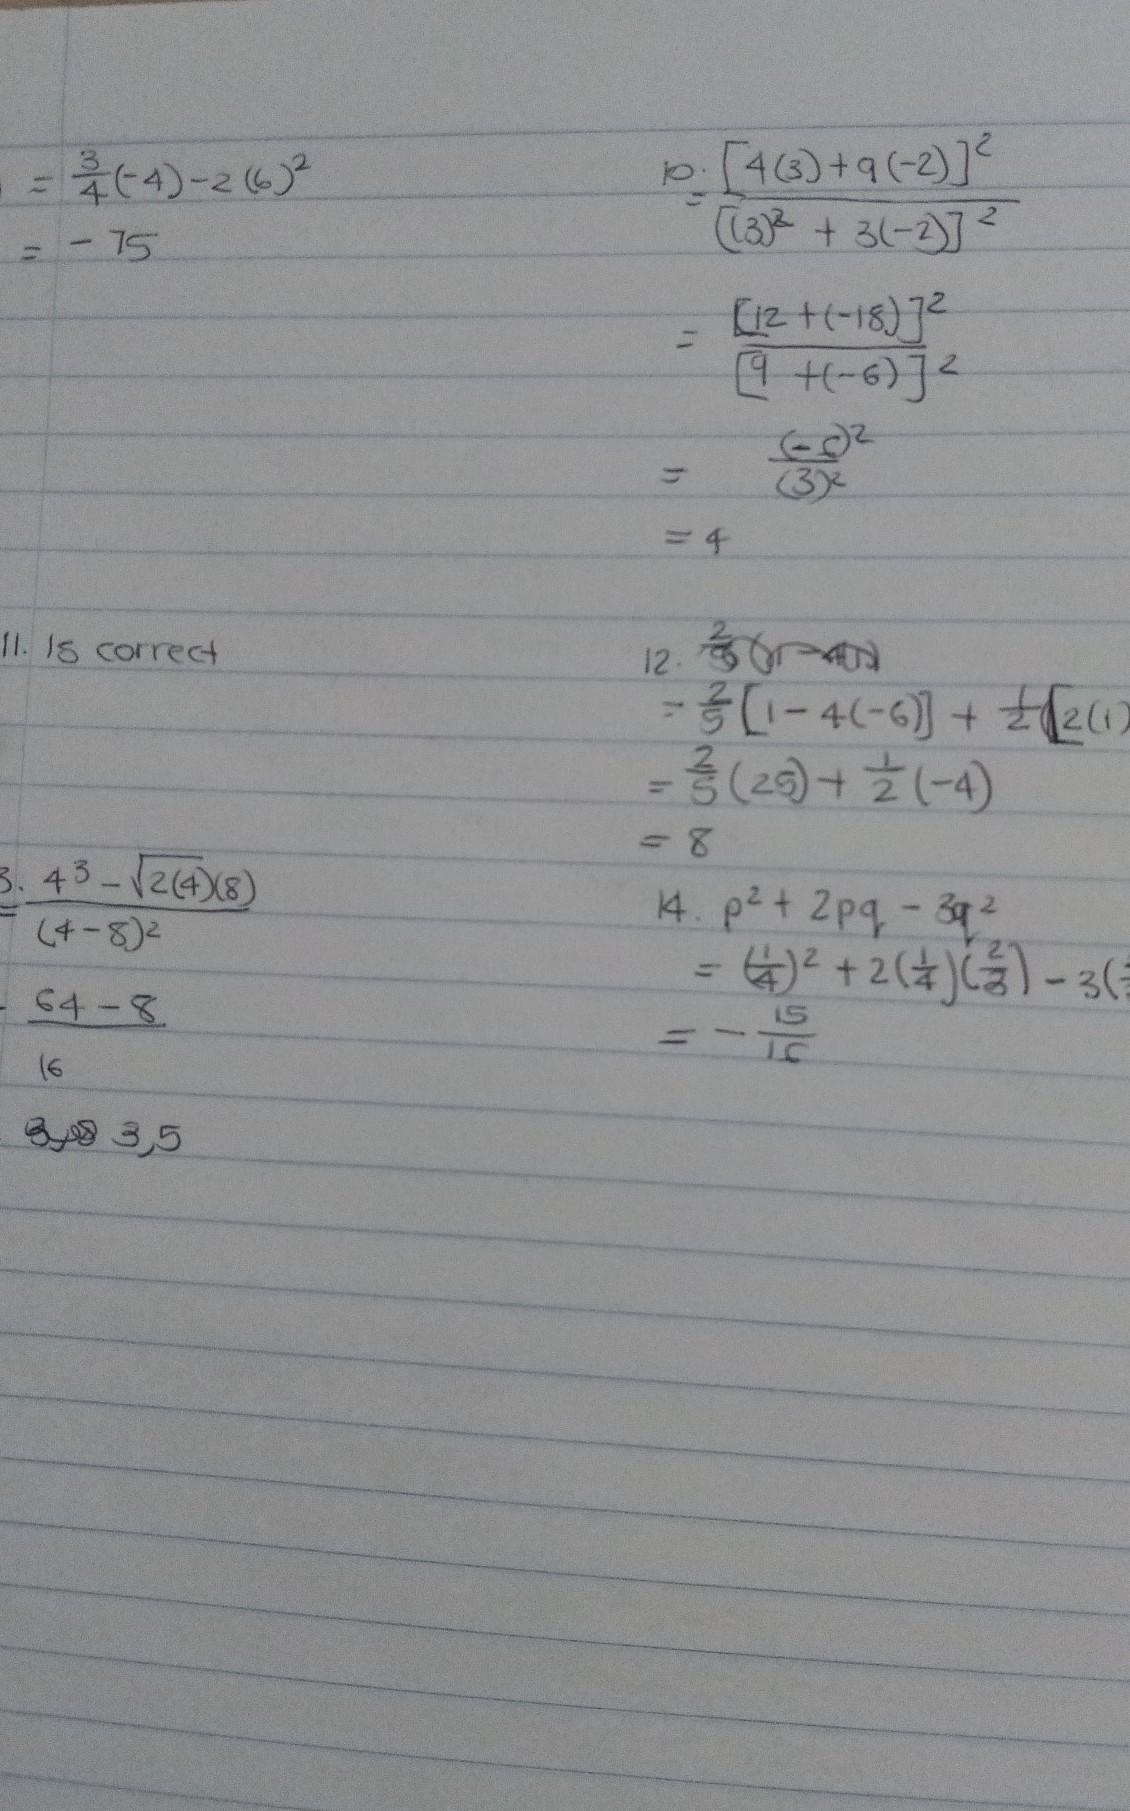 = 3/4 (-4) - 2(6)²
= -75
10. = [4(3) + 9(-2)]² / [(3)² + 3(-2)]²
= [12 + (-18)]² / [9 + (-6)]²
= (-6)² / (3)²
= 4
11. Is correct
12.
= 2/5 [1 - 4(-6)] + 1/2 [2(1)
= 2/5 (25) + 1/2 (-4)
= 8
3. = 4³ - √2(4)(8) / (4-8)²
64 - 8 / 16
3,5
14. p² + 2pq - 3q²
= (1/4)² + 2(1/4)(2/3) - 3(
= - 15/16